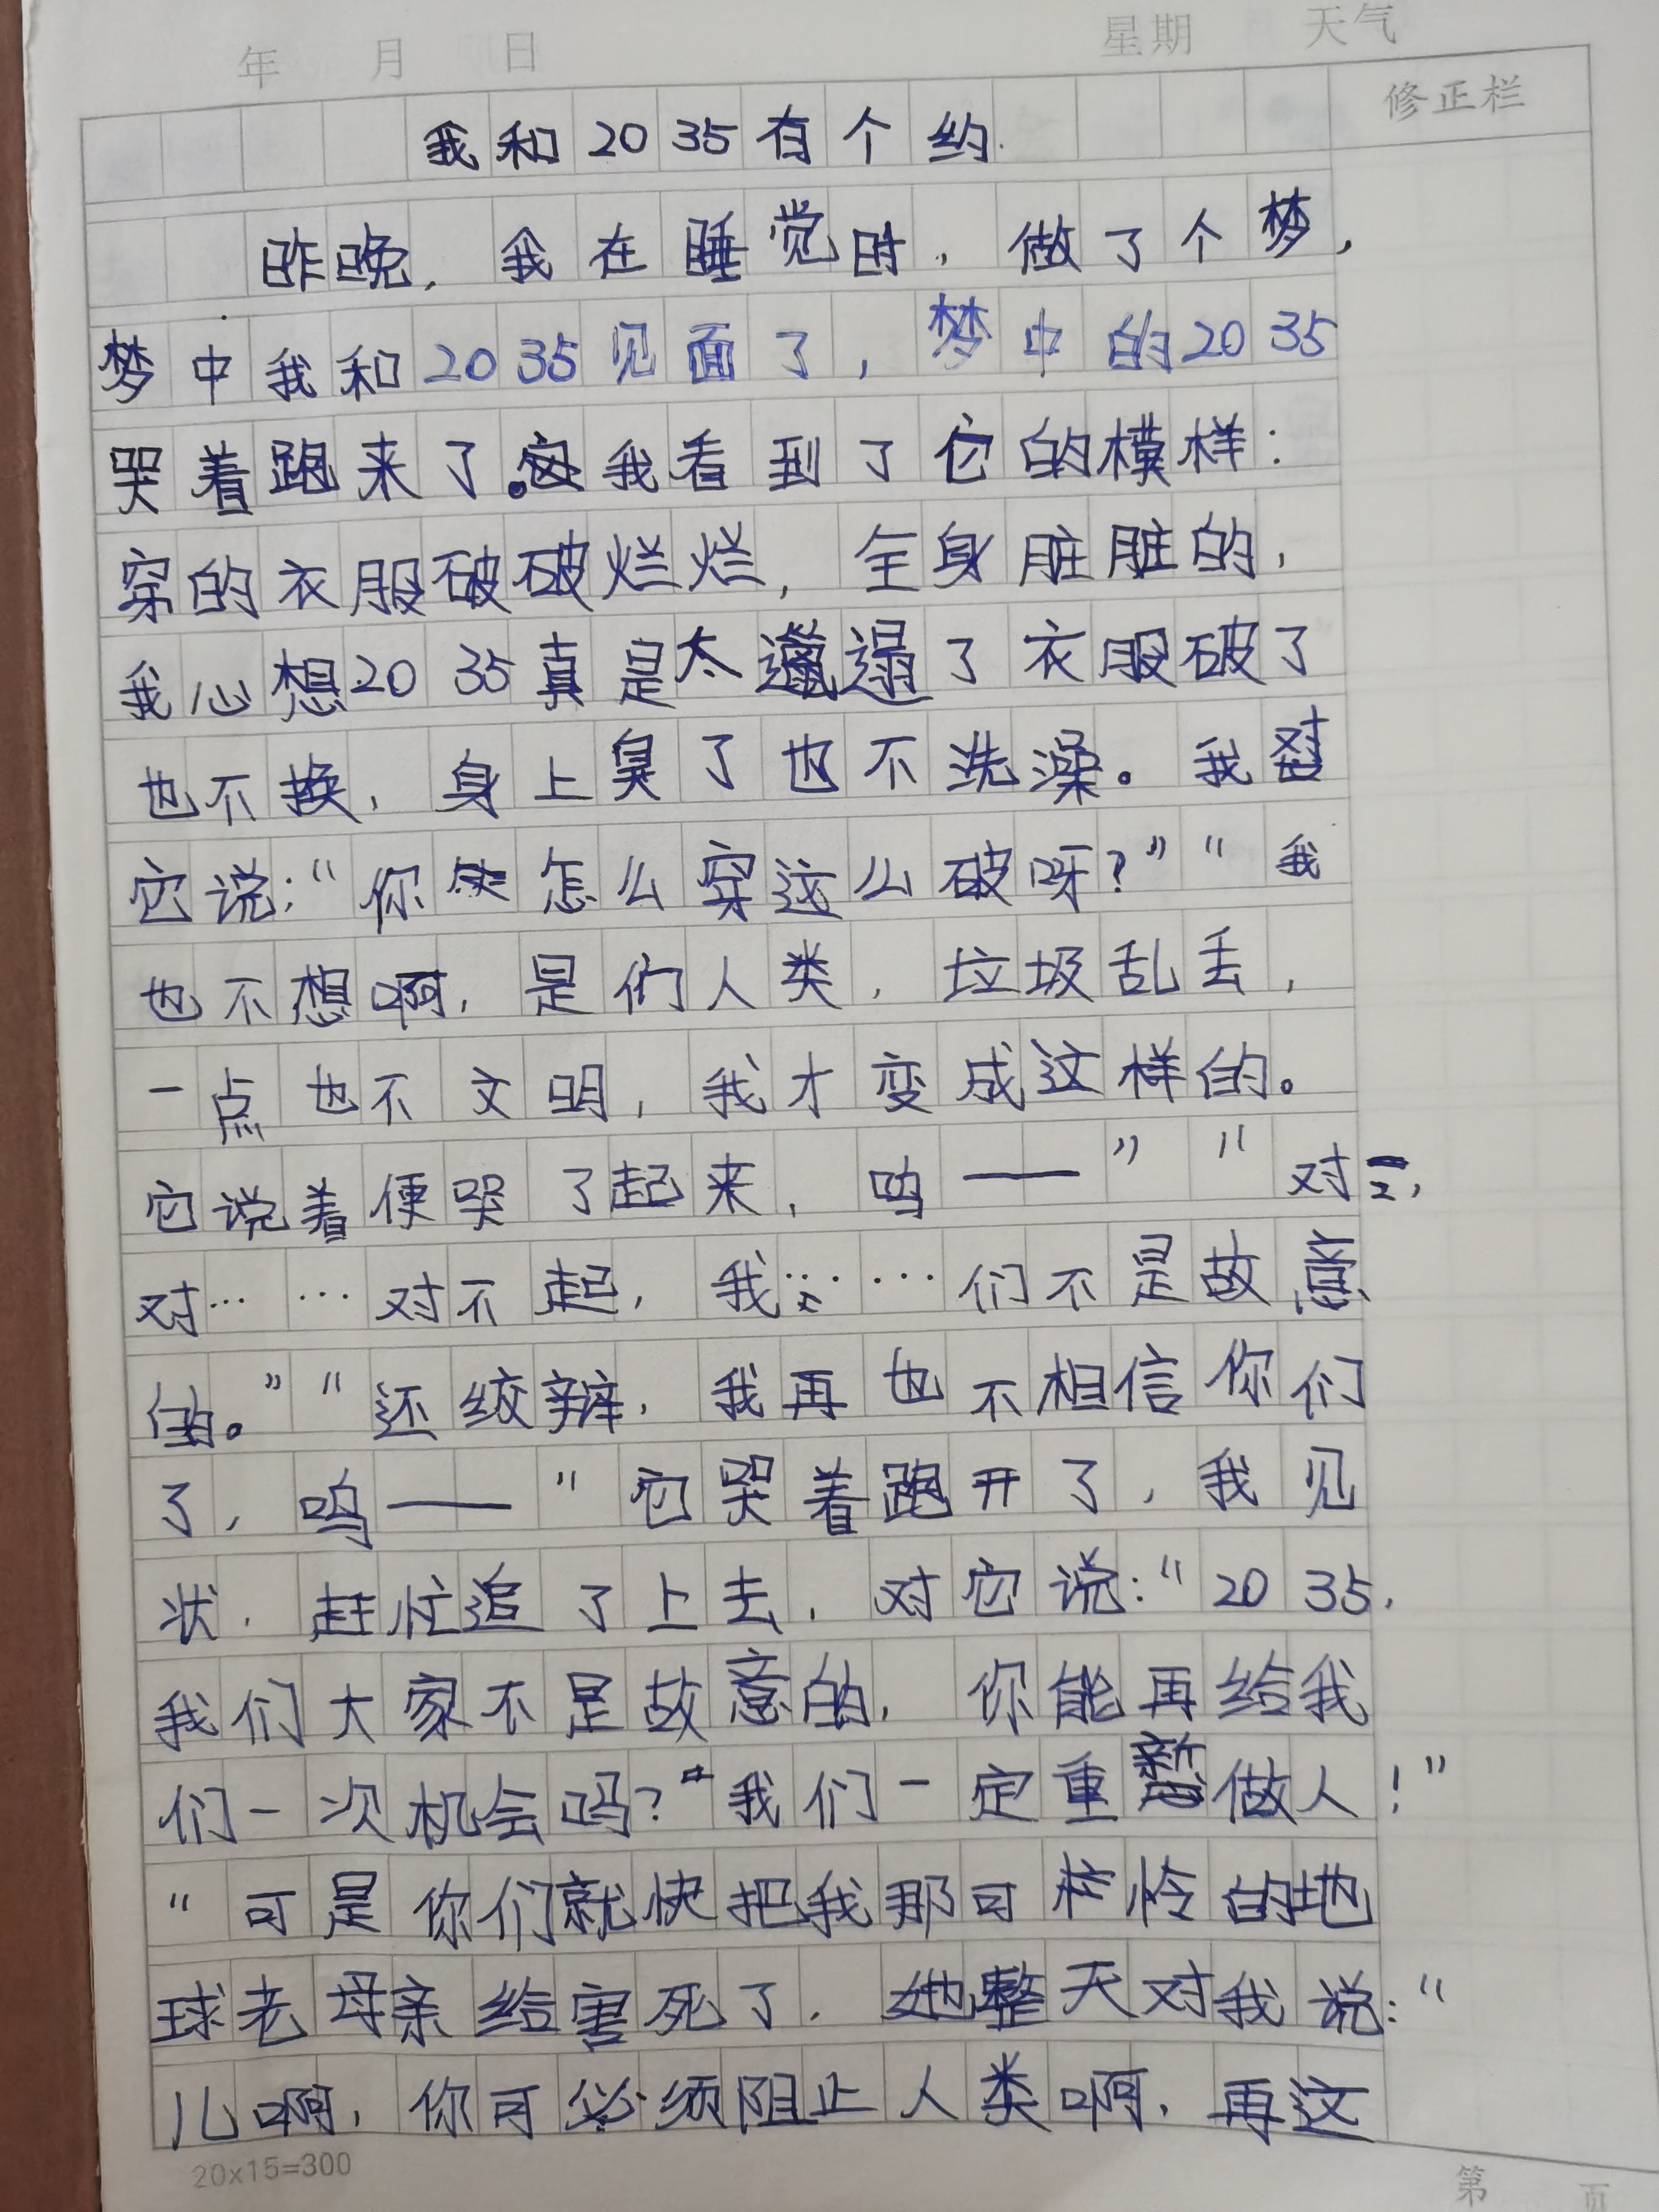 年 月 日 星期 天气
修正栏
我和2035有个约.
昨晚，我在睡觉时，做了个梦，
梦中我和2035见面了，梦中的2035
哭着跑来了。我看到了它的模样：
穿的衣服破破烂烂，全身脏脏的，
我心想2035真是太邋遢了衣服破了
也不换，身上臭了也不洗澡。我怼
它说：“你怎么穿这么破呀？”“我
也不想啊，是们人类，垃圾乱丢，
一点也不文明，我才变成这样的。
它说着便哭了起来，呜——”“对
对……对不起，我……们不是故意
的。”“还绞辩，我再也不相信你们
了，呜——”它哭着跑开了，我见
状，赶忙追了上去，对它说：“2035，
我们大家不是故意的，你能再给我
们一次机会吗？我们一定重新做人！”
“可是你们就快把我那可怜的地
球老母亲给害死了，她整天对我说：“
儿啊，你可必须阻止人类啊，再这
20x15=300
第 页